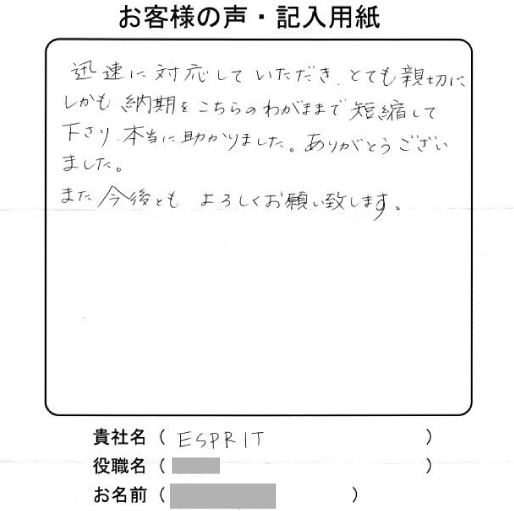 お客様の声・記入用紙
迅速に対応していただき、とても親切に
しかも納期をこちらのわがままで短縮して
下さり、本当に助かりました。ありがとうござい
ました。
また今後とも よろしくお願い致します。
貴社名（ ESPRIT ）
役職名（ ）
お名前（ ）